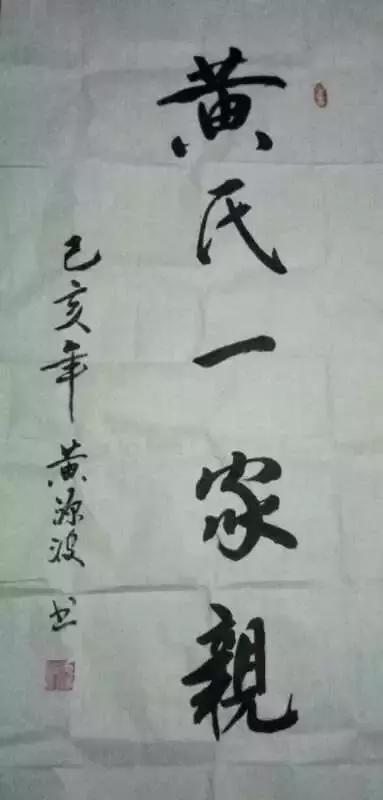 黄氏一家親
己亥年 黄源波 书